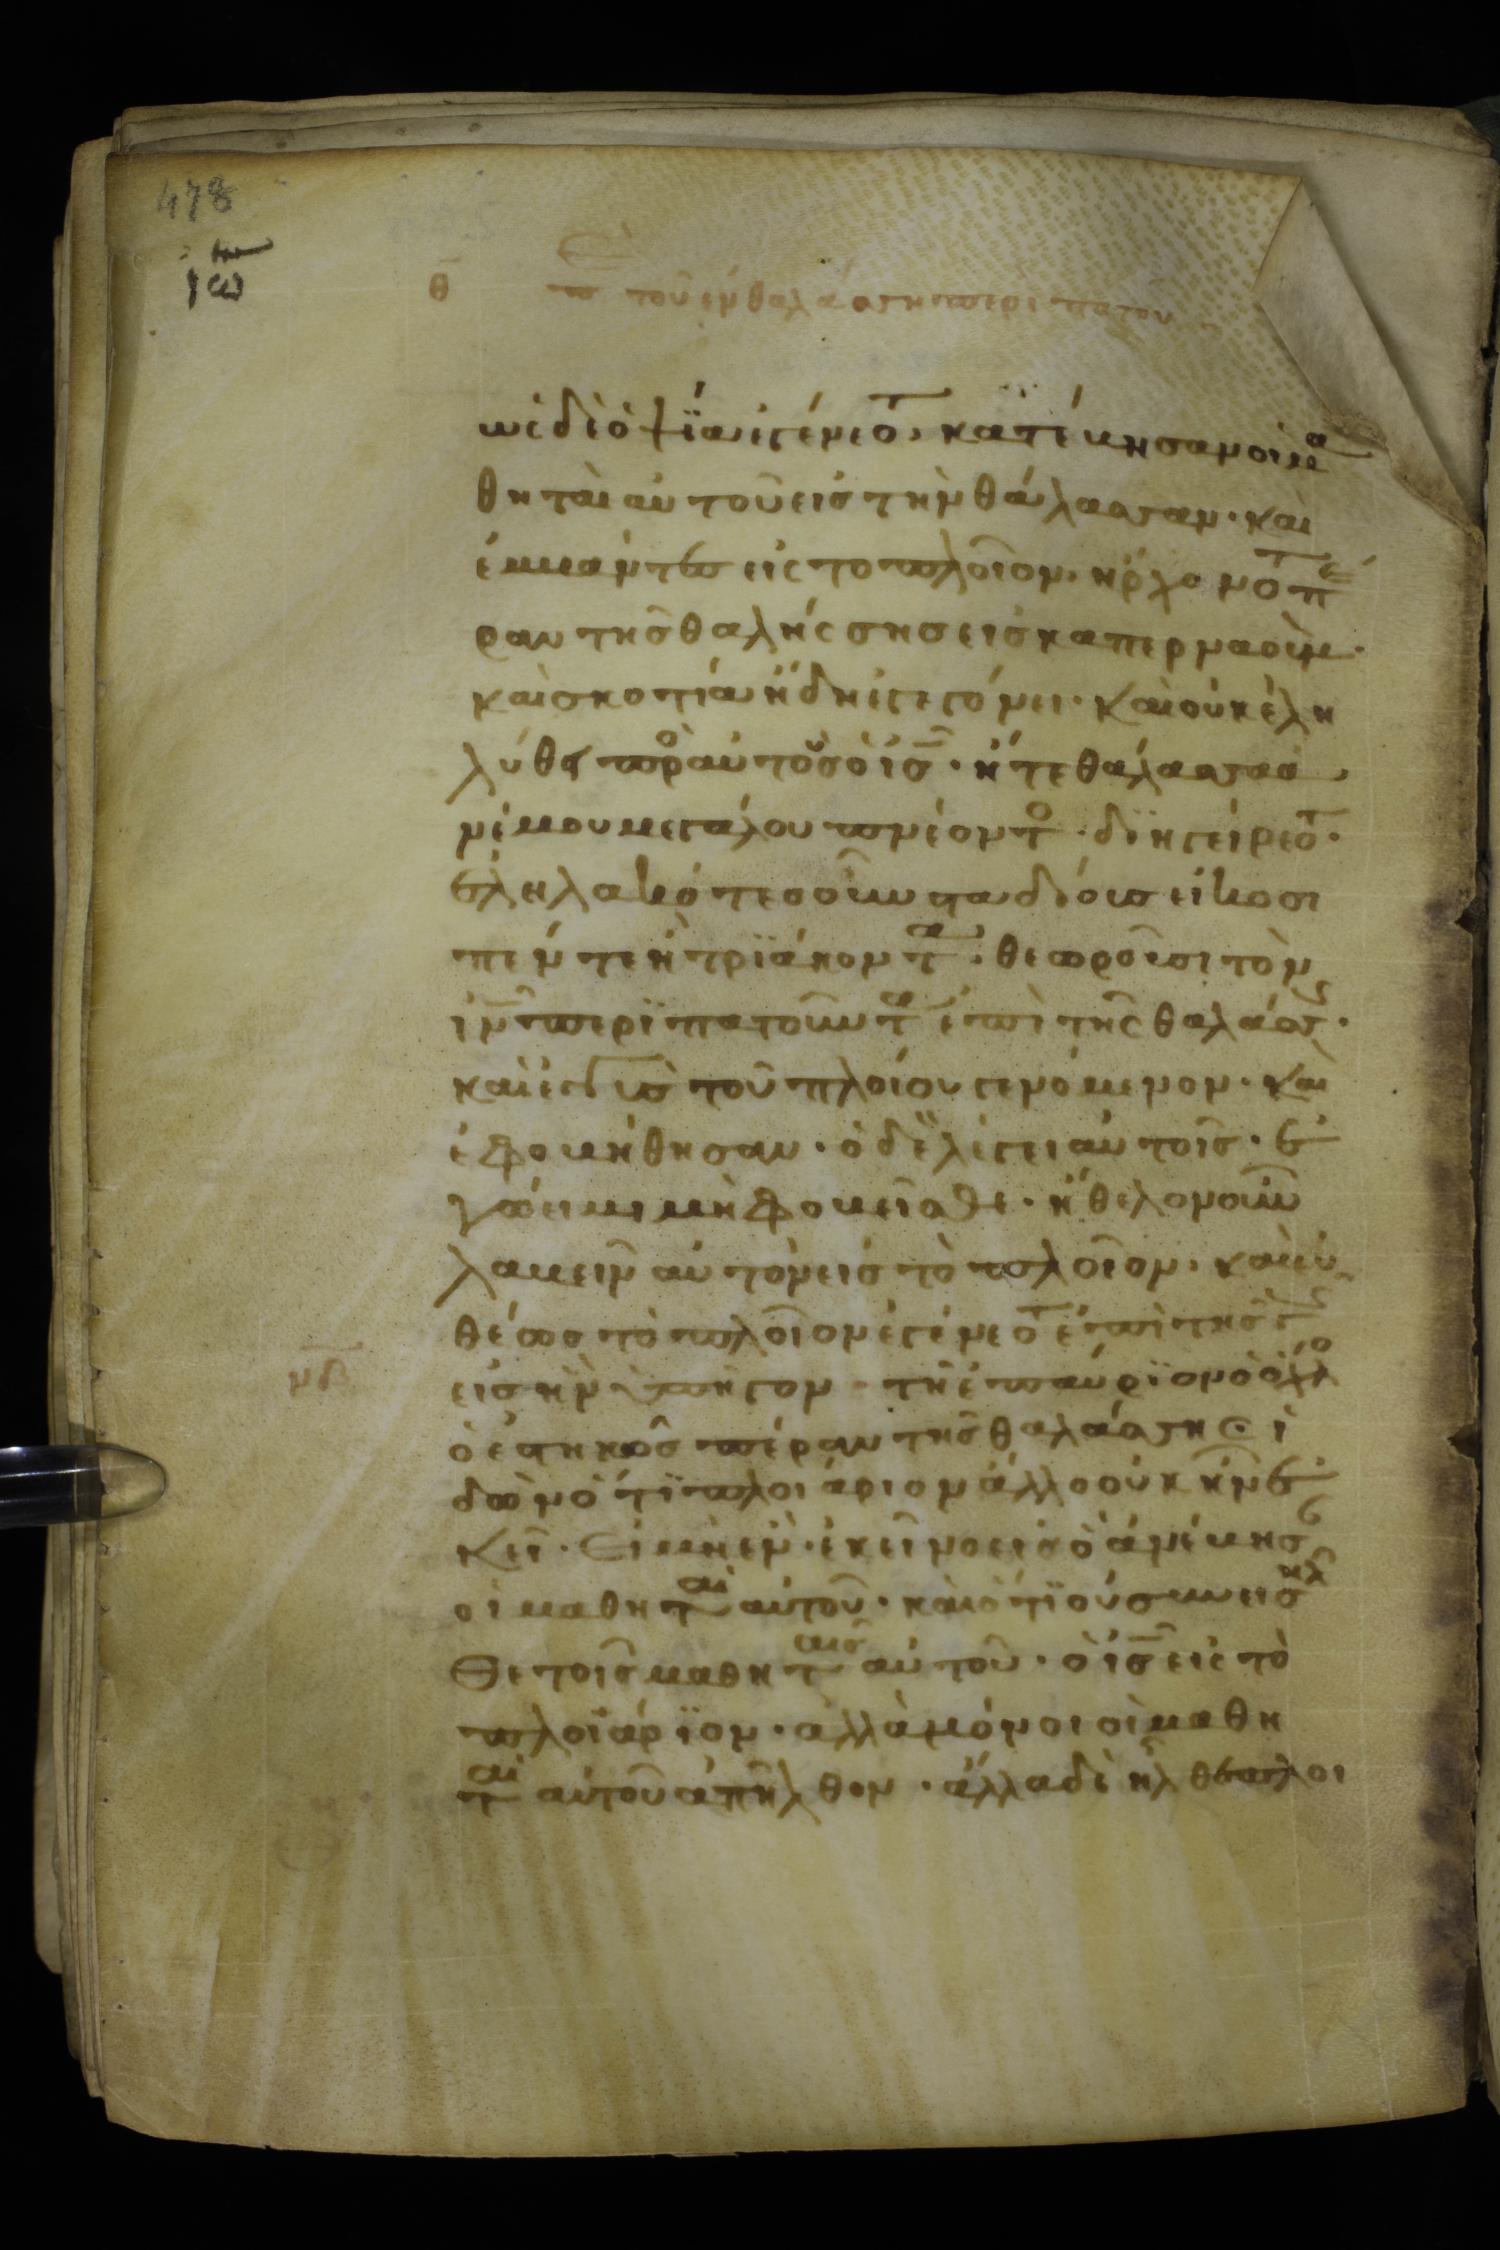 478
θ περὶ τοῦ ἐν θαλάσση περιπάτου
ὡς δὲ ὀψΐα ἐγένετο, κατέβησαν οἱ μα
θηταὶ αὐτοῦ εἰς τὴν θάλασσαν· καὶ
ἐμβάντες εἰς το πλοῖον· ἤρχοντο πέ
ραν τῆς θαλάσσης εἰς καπερναοὺμ·
καὶ σκοτία ἤδη ἐγεγόνει· καὶ οὐκ ἐλη
λύθει πρὸς αὐτοὺς ὁ ις· ἥ τε θάλασσα ἀ
νέμου μεγάλου πνέοντος· διηγείρετο·
ἐληλακότες οὖν σταδίους εἴκοσι
πέντε ἢ τριάκοντα· θεωροῦσι τὸν
ιν περιπατοῦντα ἐπὶ τῆς θαλάσσης·
καὶ ἐγγὺς τοῦ πλοίου γενόμενον· καὶ
ἐφοβήθησαν· ὁ δὲ λέγει αὐτοῖς· ἐ
γώ εἰμι μὴ φοβεῖσθε· ἤθελον οὖν
λαβεῖν αὐτὸν εἰς τὸ πλοῖον· καὶ εὐ
θέως τὸ πλοῖον ἐγένετο ἐπὶ τῆς γῆς
μβ εἰς ἣν ὑπῆγον· τῆ ἐπαύριον ὁ ὄχλος
ὁ ἑστηκὼς πέραν τῆς θαλάσσης ἰ
δὼν ὅτι πλοιάριον ἄλλο οὐκ ἦν ἐ
κεῖ· εἰ μὴ ἓν· ἐκεῖνο εἰς ὃ ἀνέβησαν
οἱ μαθηταὶ αὐτοῦ· καὶ ὅτι οὐ συνεισῆλ
θε τοῖς μαθηταῖς αὐτοῦ· ὁ ις εἰς τὸ
πλοιάριον· ἀλλὰ μόνοι οἱ μαθη
ταὶ αὐτοῦ ἀπῆλθον· ἄλλα δὲ ἦλθε πλοι